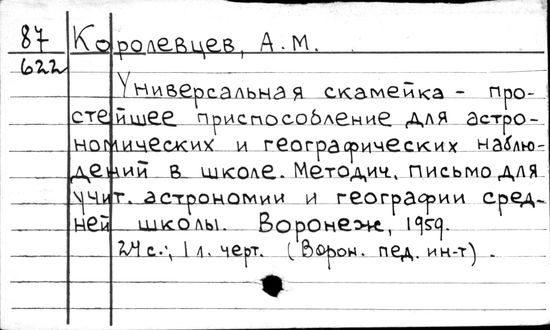 87 Королевцев, А.М.
622
Универсальная скамейка - про-
стейшее приспособление для астро-
номических и географических наблю-
дений в школе. Методич. письмо для
учит. астрономии и географии сред-
ней школы. Воронеж, 1959.
24 с.; 1 л. черт. (Ворон. пед. ин-т).